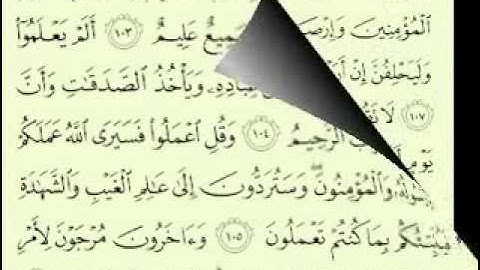 ٱلْمُؤْمِنِينَ عَلِيمٌ ١٠٣ أَلَمْ يَعْلَمُوٓا۟
وَلَيَحْلِفُنَّ إِنْ وَيَأْخُذُ ٱلصَّدَقَٰتِ وَأَنَّ
١٠٧ لَا ٱلرَّحِيمُ ١٠٤ وَقُلِ ٱعْمَلُوا۟ فَسَيَرَى ٱللَّهُ عَمَلَكُمْ
يَوْمٍ
وَٱلْمُؤْمِنُونَ ۖ وَسَتُرَدُّونَ إِلَىٰ عَٰلِمِ ٱلْغَيْبِ وَٱلشَّهَٰدَةِ
فَيُنَبِّئُكُم بِمَا كُنتُمْ تَعْمَلُونَ ١٠٥ وَءَاخَرُونَ مُرْجَوْنَ لِأَمْرِ